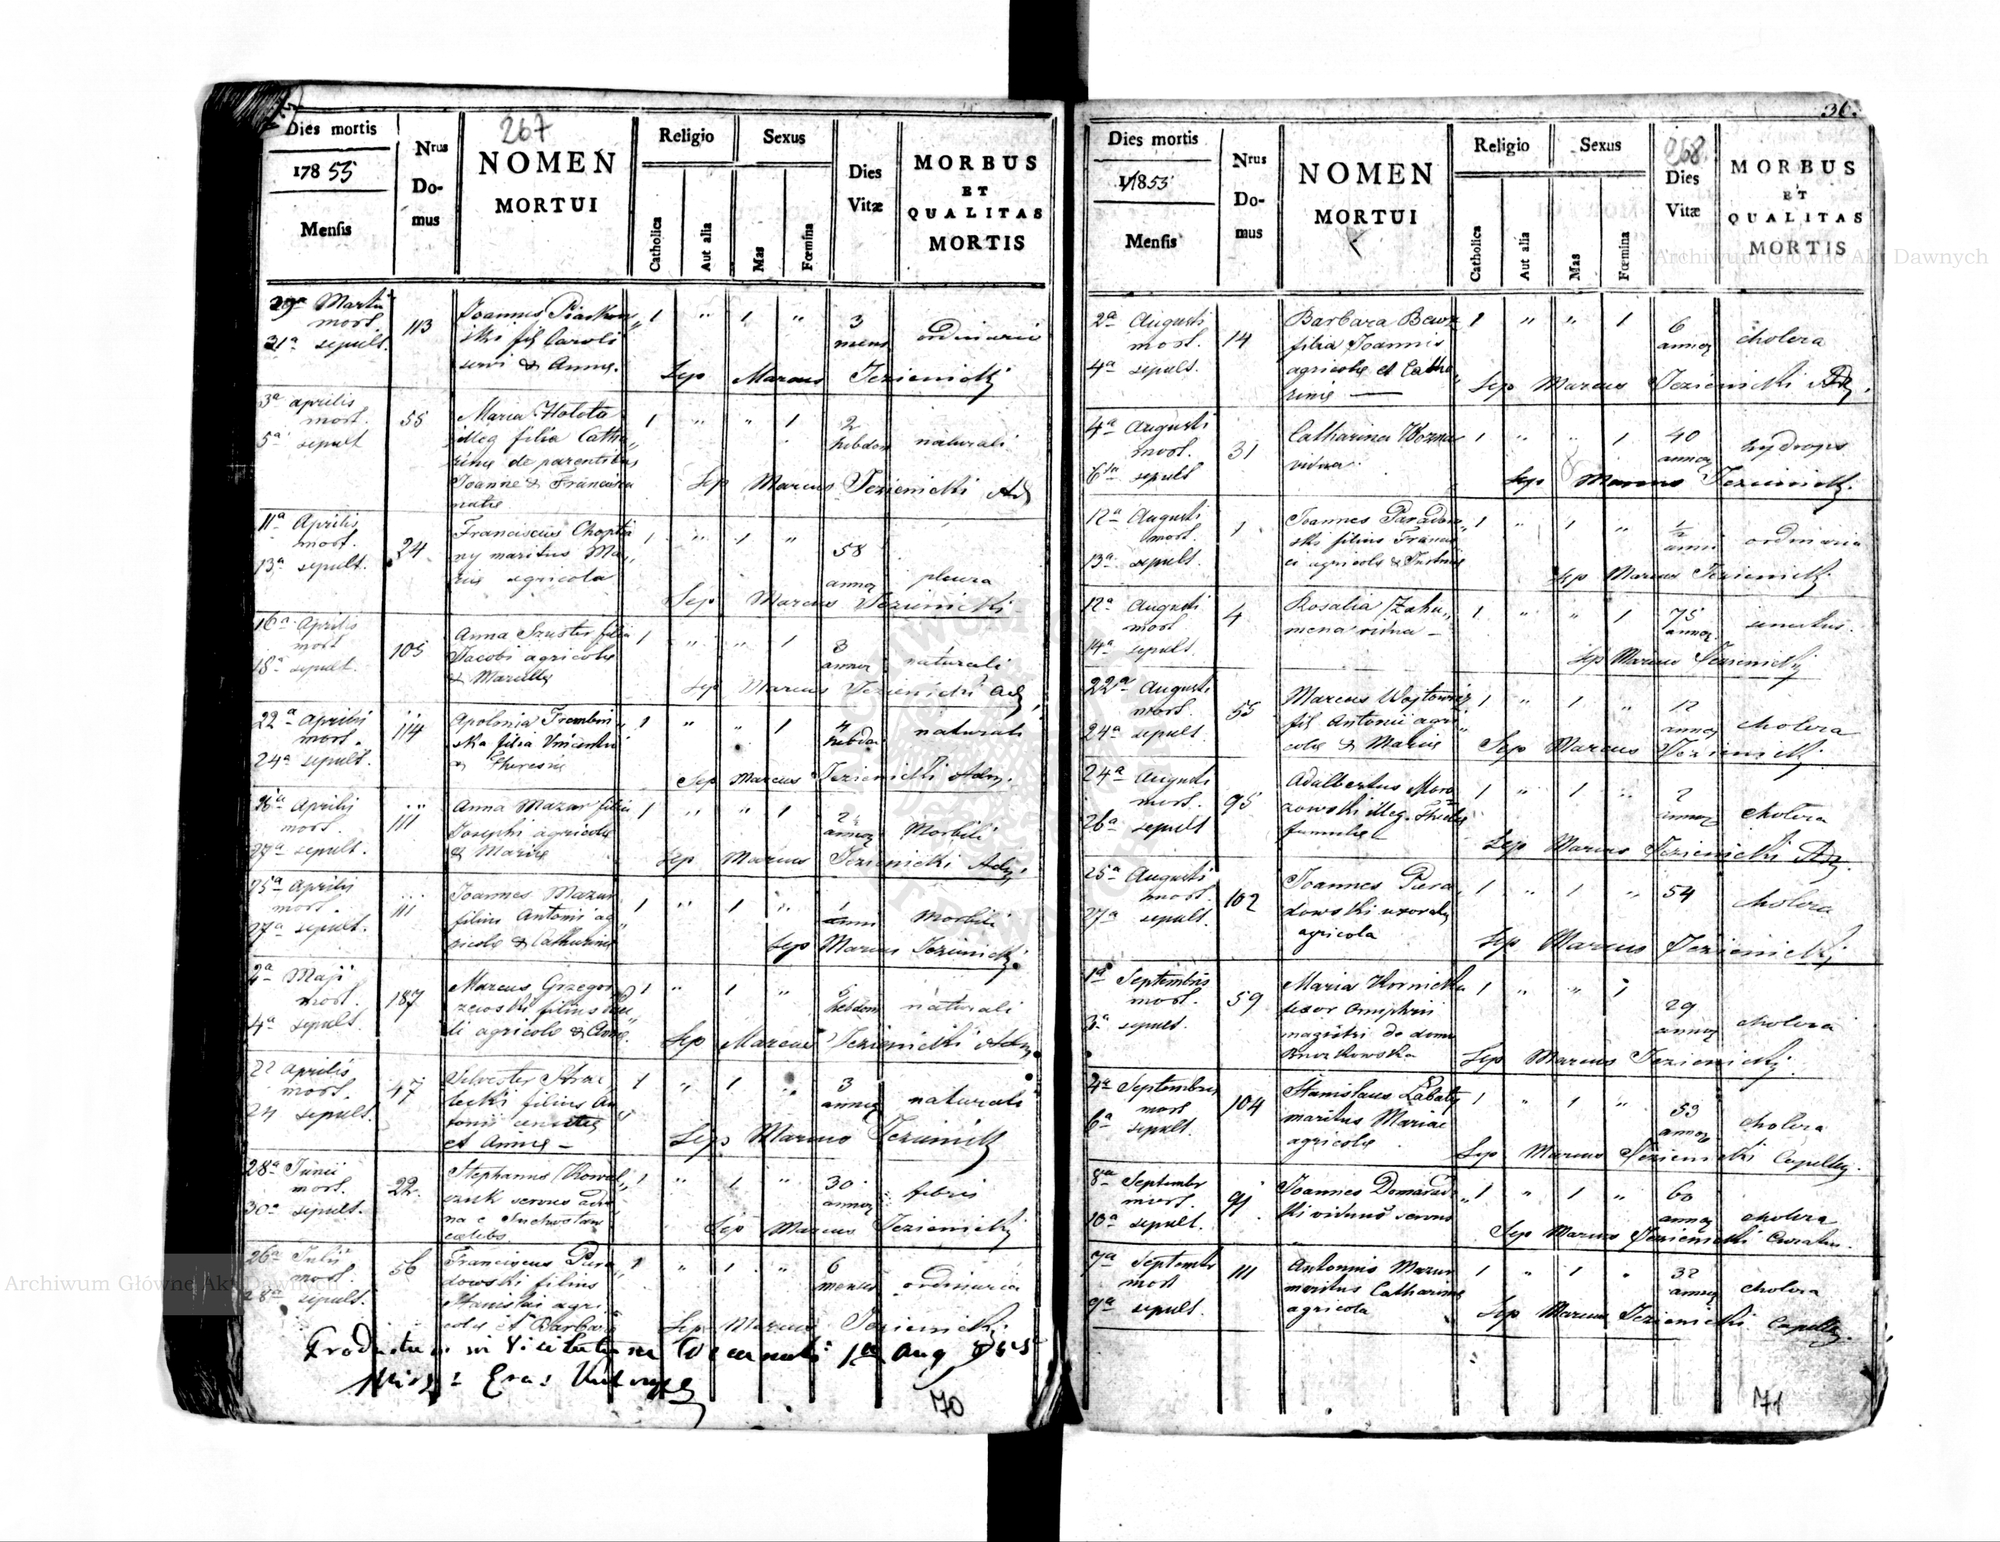 267
Dies mortis
178 55
Mensis
Nrus
Do-
mus
NOMEN
MORTUI
Religio
Catholica
Aut alia
Sexus
Mas
Fœmina
Dies
Vitæ
MORBUS
ET
QUALITAS
MORTIS
29a Martii
mort.
31a sepult.
113
Joannes
fil Caroli
servi & Annæ.
1 " 1 "
3
mens
ordinaria
Sep Marcus Jezienicki
3a aprilis
mort.
5a sepult
55
Maria Holota
illeg filia Catha
rinæ de parentibus
Joanne & Francisca
natæ
1 " " 1
2
hebdom
naturali
Sep Marcus Jezienicki Ad
11a Aprilis
mort.
13a sepult.
24
Franciscus
ny maritus Ma
riæ agricola
1 " 1 "
58
annor
pleura
Sep Marcus Jezienicki
16a Aprilis
mort
18a sepult.
105
Anna Szuster filia
Jacobi agricolæ
& Marcellæ
1 " " 1
3
annor
naturali
Sep Marcus Jezienicki Ad
22a Aprilis
mort.
24a sepult.
114
Apolonia Trembin
ska filia Vincentii
& Theresiæ
1 " " 1
4
hebdo
naturali
Sep Marcus Jezienicki Adm.
Aprilis
mort.
27a sepult.
111
Anna Mazur filia
Josephi agricolæ
& Mariæ
1 " " 1
2
annor
Morbili
Sep Marcus Jezienicki Ad
25a Aprilis
mort.
27a sepult.
111
Joannes Mazur
filius Antonii ag
ricolæ & Catharinæ
1 " 1 "
1
anni
Morbili
Sep Marcus Jezienicki
2a Maji
mort.
4a sepult.
187
Marcus Grzegor
zewski filius
li agricolæ & Annæ
1 " 1 "
hebdom
naturali
Sep Marcus Jezienicki Adm
22 Aprilis
mort.
24 sepult.
47
Silvester Strze
lecki filius An
tonii
et Annæ –
1 " 1 "
3
annor
naturali
Sep Marcus Jezienicki
28a Junii
mort.
30a sepult.
22
Stephanus Kowal
czuk servus
na e Suchostaw
cælibs
1 " 1 "
30
annor
febris
Sep Marcus Jezienicki
26a Julii
mort.
28a sepult.
56
Franciscus Para
dowski filius
Stanislai agri
colæ et Barbaræ
1 " 1 "
6
menses
ordinaria
Sep Marcus Jezienicki
70
36.
268
Dies mortis
1855
Mensis
Nrus
Do-
mus
NOMEN
MORTUI
Religio
Catholica
Aut alia
Sexus
Mas
Fœmina
Dies
Vitæ
MORBUS
ET
QUALITAS
MORTIS
2a Augusti
mort.
4a sepult.
14
Barbara
filia Joannis
agricolæ et Catha
rinæ —
1 " " 1
6
annor
cholera
Sep Marcus Jezienicki Ad
4a Augusti
mort.
6ta sepult
31
Catharina Wozna
vidua
1 " " 1
40
annor
hydrops
Sep Marcus Jezienicki
12a Augusti
mort.
13a sepult.
1
Joannes Paradow
ski filius Francis
ci agricolæ & Justinæ
1 " 1 "
1/2
anni
ordinaria
Sep Marcus Jezienicki
12a Augusti
mort
14a sepult.
4
Rosalia Zahu
mena vidua –
1 " " 1
75
annor
senectus.
Sep Marcus Jezienicki
22a Augusti
mort.
24a sepult.
55
Marcus Wojtowicz
fil Antonii agri
colæ & Mariæ
1 " 1 "
12
annor
cholera
Sep Marcus Jezienicki
24a Augusti
mort.
26a sepult
95
Adalbertus Moro
zowski illeg. Theclæ
famulæ
1 " 1 "
2
annor
cholera
Sep Marcus Jezienicki Ad
25a Augusti
mort.
27a sepult.
102
Joannes Para
dowski uxoratus
agricola
1 " 1 "
54
cholera
Sep Marcus Jezienicki
1a Septembris
mort.
3a sepult.
59
Maria Kornicka
uxor Onuphrii
magistri de domo
Bruzkowska
1 " " 1
29
annor
cholera
Sep Marcus Jezienicki
4a Septembris
mort
6a sepult.
104
Stanislaus Labaty
maritus Mariae
agricola
1 " 1 "
53
annor
cholera
Sep Marcus Jezienicki Capellan.
8a Septembr
mort.
10a sepult.
91
Joannes Domarad
ki viduus servus
1 " 1 "
60
annor
cholera
Sep Marcus Jezienicki Curatus.
7a Septembr
mort
9a sepult.
111
Antonius Mazur
maritus Catharinæ
agricola
1 " 1 "
32
annor
cholera
Sep Marcus Jezienicki Capellan.
171
Archiwum Główne Akt Dawnych
Archiwum Główne Akt Dawnych